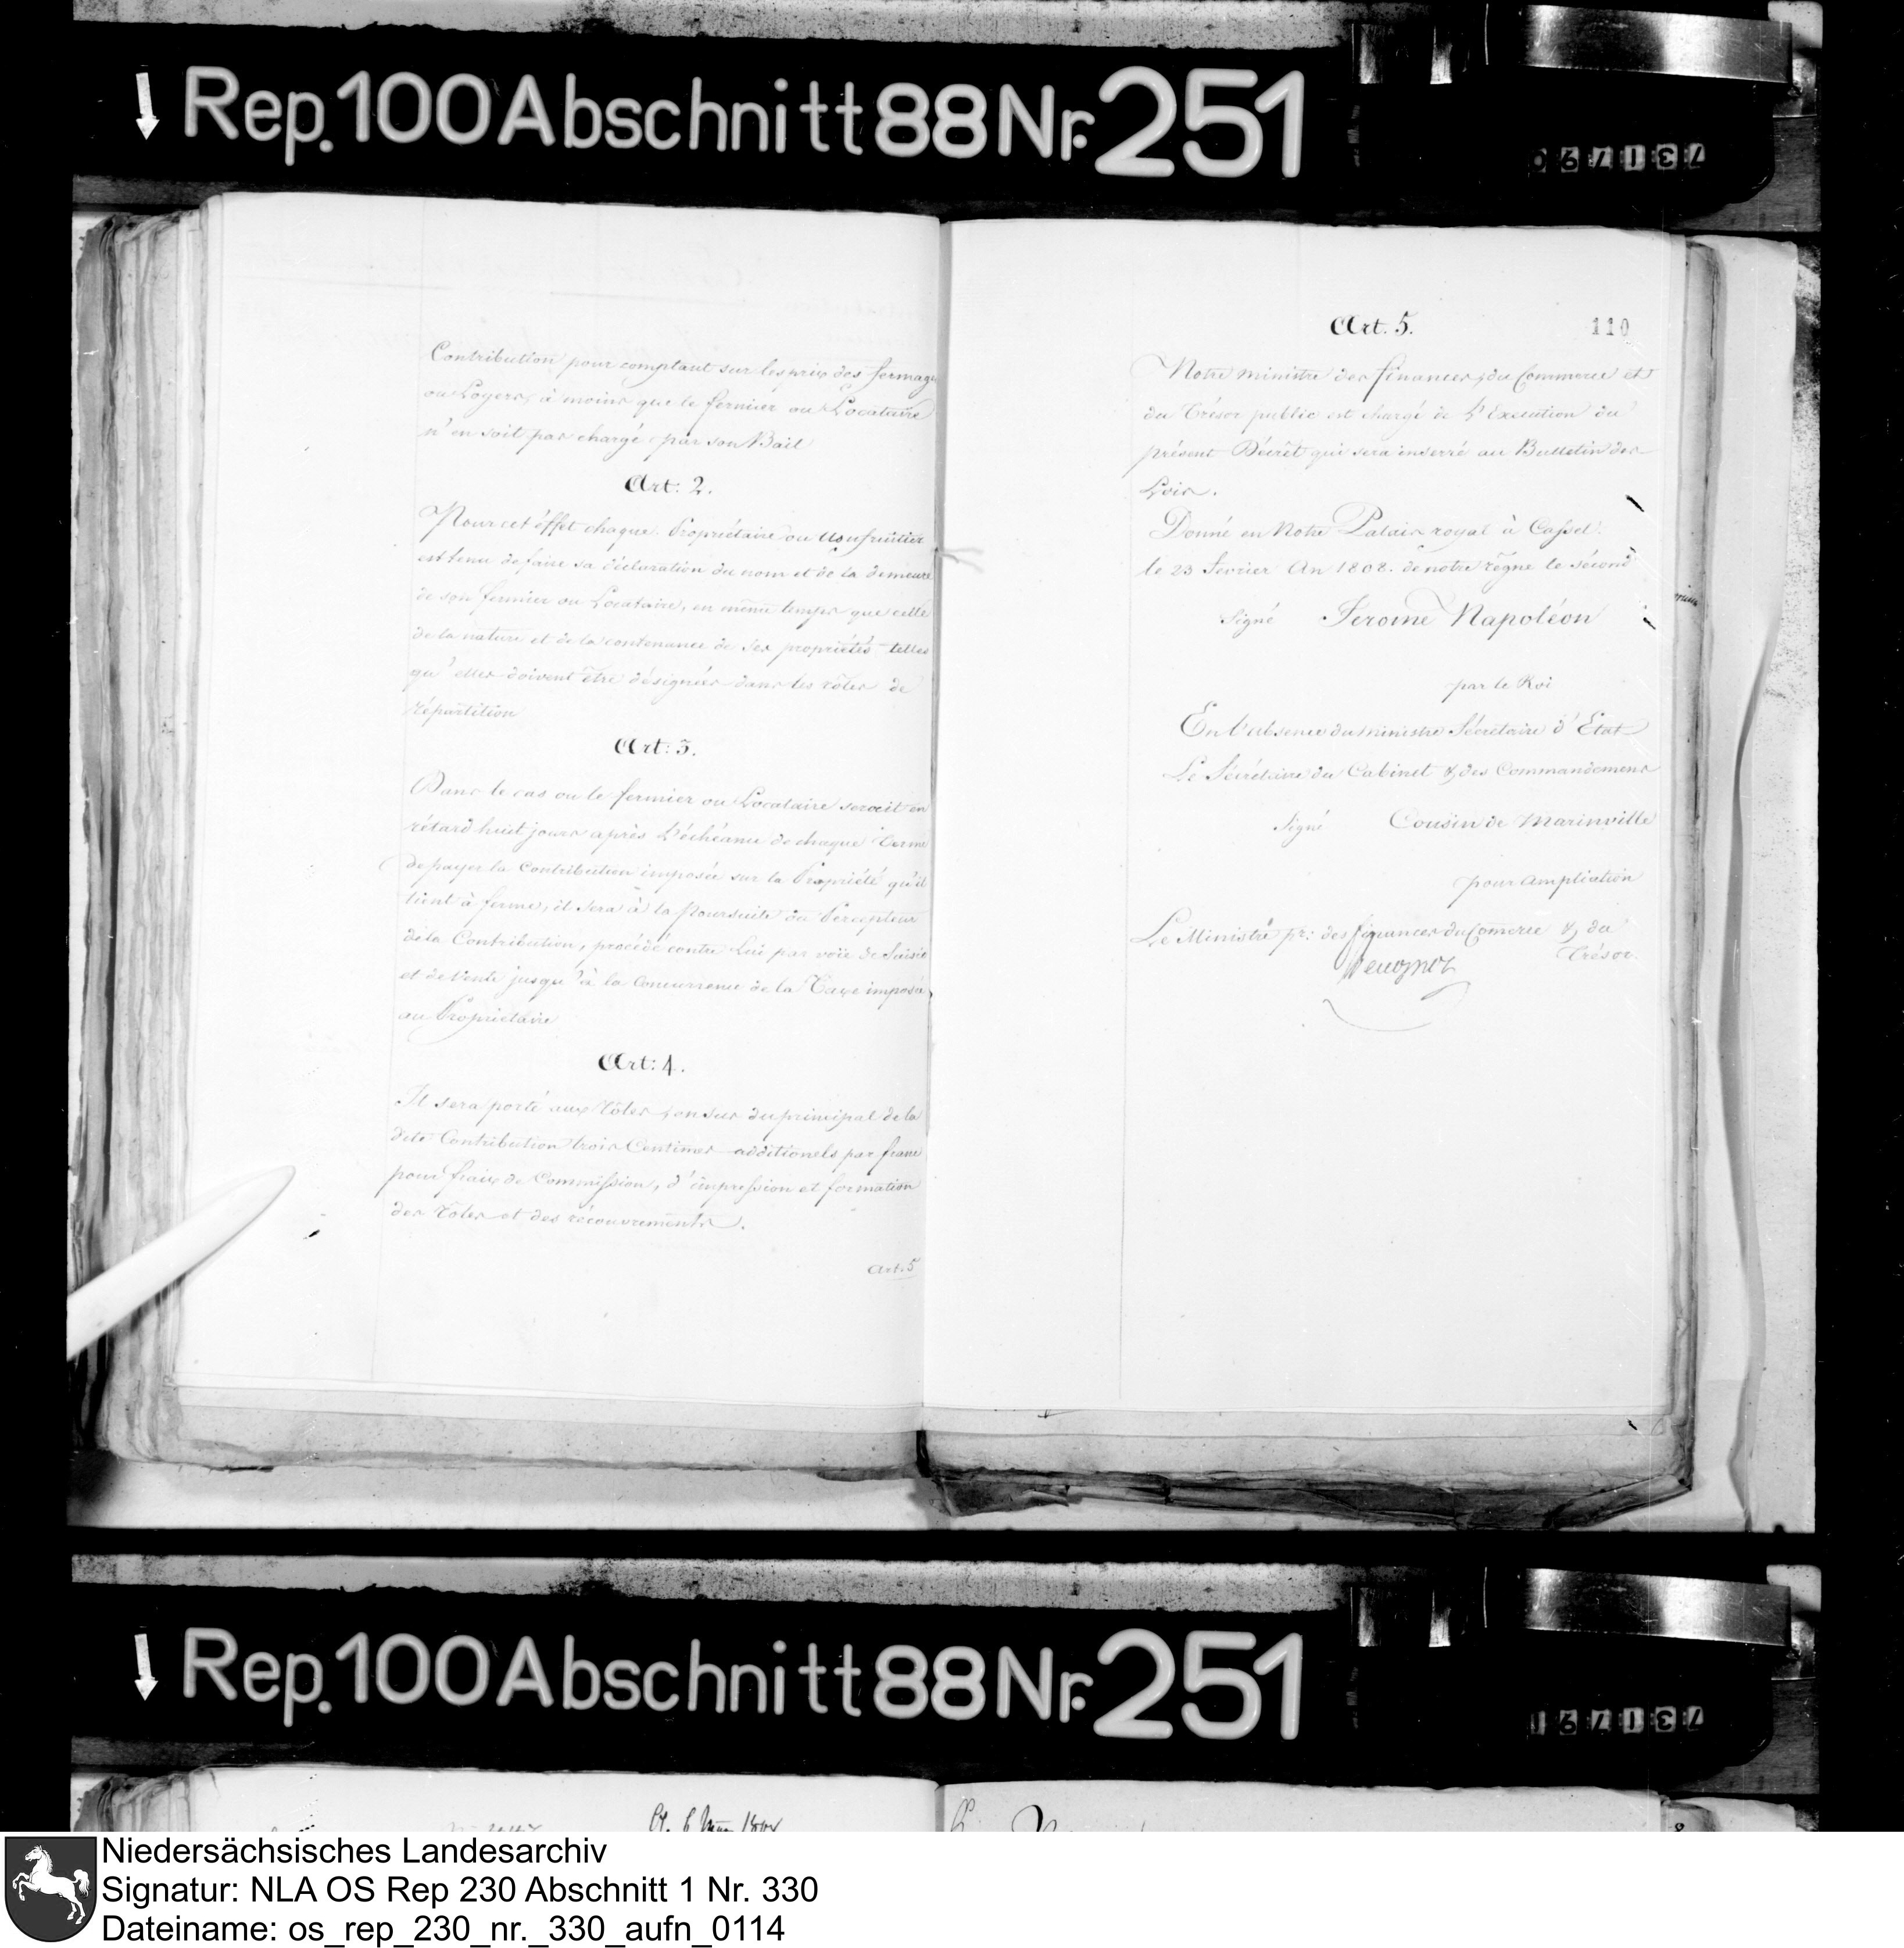 Rep. 100 Abschnitt 88 Nr. 251
731790
Contribution pour comptant sur les prix des fermages
ou Loyers, à moins que le fermier ou Locataire
n'en soit pas chargé par son Bail
Art: 2.
Pour cet éffet chaque Propriétaire ou Usufruitier
est tenu de faire sa déclaration du nom et de la demeure
de son fermier ou Locataire, en même temps que celle
de la nature et de la contenance de ses propriétés telles
qu'elles doivent être désignées dans les rôles de
répartition
Art: 3.
Dans le cas ou le fermier ou Locataire seroit en
rétard huit jours après l'échéance de chaque Terme
de payer la Contribution imposée sur la Propriété qu'il
tient à ferme, il sera à la Poursuite du Percepteur
de la Contribution, procédé contre Lui par voïe de Saisie
et de Vente jusqu'à la Concurrence de la Taxe imposée
au Propriétaire
Art: 4.
Il sera porté aux rôles, en sus du principal de la
dite Contribution trois Centimes additionels par franc
pour fraix de Commission, d'impression et formation
des rôles et des récouvrements.
Art. 5
Art. 5.
110
Notre Ministre des finances, du Commerce et
du Trésor public est chargé de l'Execution du
présent Décrêt qui sera inserré au Bulletin des
Loix.
Donné en Notre Palais royal à Cassel
le 23 Fevrier An 1808. de notre règne le sécond
Signé Jerome Napoléon
par le Roi
En l'absence du Ministre Sécretaire d'Etat
Le Sécrétaire du Cabinet & des Commandemens
Signé Cousin de Marinville
pour ampliation
Le Ministre pr: des finances du Comerce & du
Trésor.
Beugnot
Rep. 100 Abschnitt 88 Nr. 251
731791
Niedersächsisches Landesarchiv
Signatur: NLA OS Rep 230 Abschnitt 1 Nr. 330
Dateiname: os_rep_230_nr._330_aufn_0114